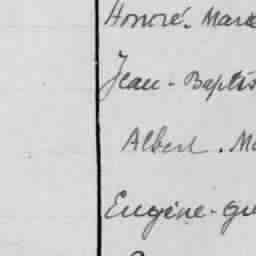 Honoré. Mari
Jean-Baptis
Albert. Ma
Eugène-Gu